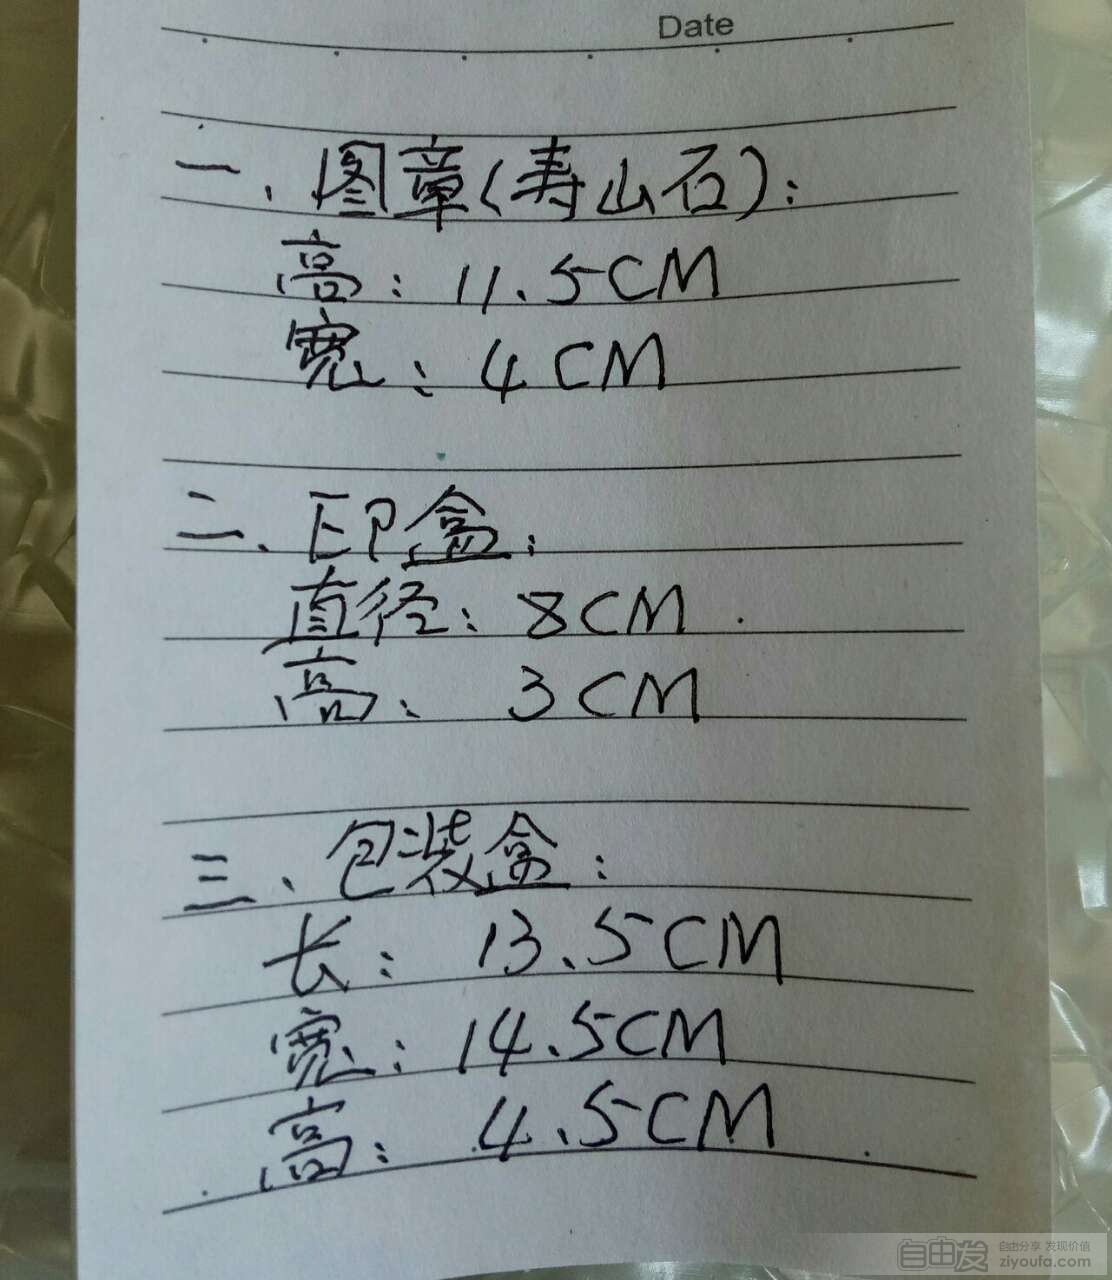 Date
一、图章(寿山石):
高: 11.5CM
宽: 4CM
二、印盒:
直径: 8CM
高: 3CM
三、包装盒:
长: 13.5CM
宽: 14.5CM
高: 4.5CM
自由发 自由分享 发现价值
ziyoufa.com